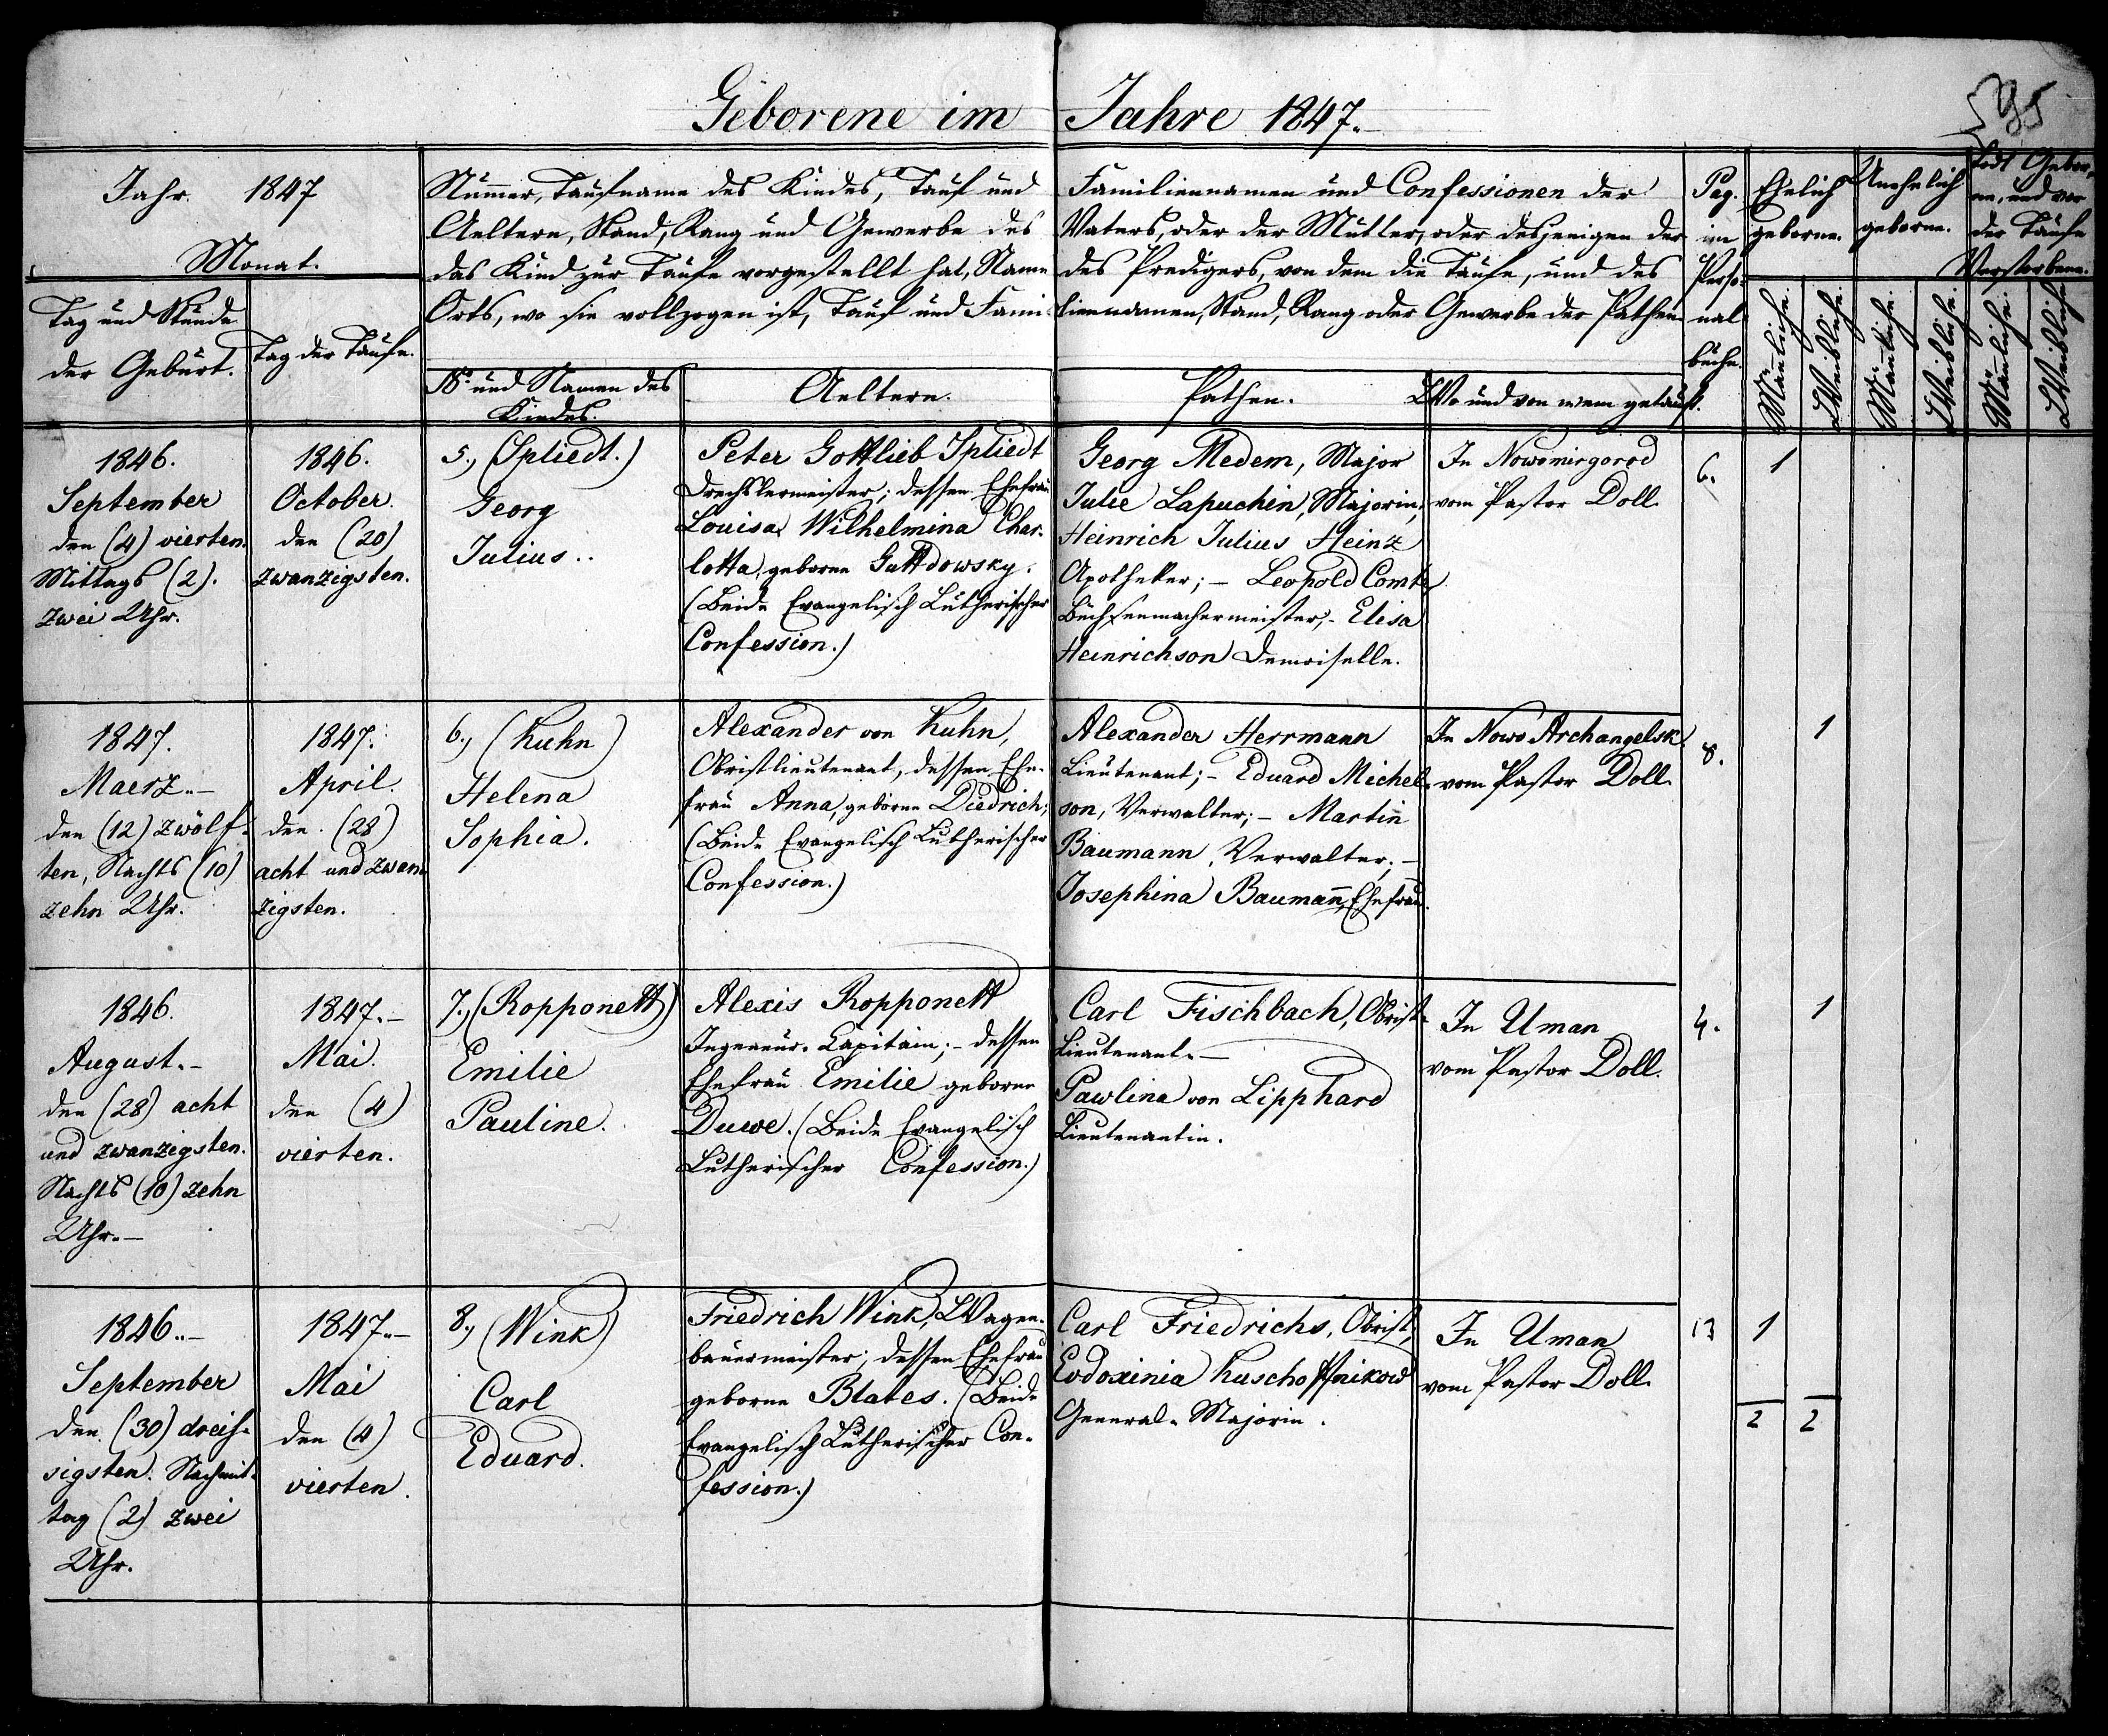 Geborene im Jahre 1847.
595
Jahr. 1847
Monat.
Tag und Stunde
der Geburt.
Tag der Taufe.
Nummer, Taufname des Kindes, Tauf und Familiennamen und Confessionen der
Aeltern, Stand, Rang und Gewerbe des Vaters, oder der Mutter, oder desjenigen der
das Kind zur Taufe vorgestellt hat, Name des Predigers, von dem die Taufe, und des
Orts, wo sie vollzogen ist, Tauf und Familiennamen, Stand, Rang oder Gewerbe der Pathen
No. und Namen des
Kindes.
Aeltern.
Pathen.
Wo und von wem getauft.
Pag.
im
Perso-
nal
buche.
Ehelich
geborne.
Unehelich
geborne.
Todt Gebor-
ne, und vor
der Taufe
Verstorbene.
Männliche.
Weibliche.
Männliche.
Weibliche.
Männliche.
Weibliche.
1846.
September
den (4) vierten.
Mittags (2).
zwei Uhr.
1846.
October.
den (20)
zwanzigsten.
5., (Spliedt.)
Georg
Julius..
Peter Gottlieb Spliedt
Drechslermeister; dessen Ehefrau
Louisa Wilhelmina Char-
lotta, geborne Gattdowsky.
(Beide Evangelisch Lutherischer
Confession.)
Georg Medem, Major
Julie Lapuchin, Majorin;
Heinrich Julius Heinz
Apotheker; - Leopold Comte
Büchsenmachermeister, - Elisa
Heinrichson Demoiselle.
In Nowomirgorod
vom Pastor Doll.
6.
1
1847.
Maerz.-
den (12) zwölf-
ten, Nachts (10)
zehn Uhr.
1847.
April.
den. (28)
acht und zwan-
zigsten.
6., (Kuhn)
Helena
Sophia.
Alexander von Kuhn,
Obristlieutenant, dessen Ehe-
frau Anna, geborne Diedrich;
(Beide Evangelisch Lutherischer
Confession.)
Alexander Herrmann
Lieutenant; - Eduard Michel-
son, Verwalter; - Martin
Baumann, Verwalter; -
Josephina Baumann, Ehefrau.
In Nowo Archangelsk.
vom Pastor Doll.
8.
1
1846.
August.-
den (28) acht
und zwanzigsten.
Nachts (10) zehn
Uhr.-
1847.-
Mai.
den (4)
vierten.
7., (Ropponett)
Emilie
Pauline.
Alexis Ropponett
Ingeneur-Capitain; - dessen
Ehefrau Emilie geborne
Duwe. (Beide Evangelisch
Lutherischer Confession.)
Carl Fischbach, Obrist-
Lieutenant.-
Pawlina von Lipphard
Lieutenantin.
In Uman
vom Pastor Doll.
4.
1
1846.-
September
den (30) dreis-
sigsten. Nachmit-
tag (2) zwei
Uhr.
1847.-
Mai
den (4)
vierten.
8., (Wink)
Carl
Eduard.
Friedrich Wink, Wagen-
bauermeister, dessen Ehefrau
geborne Blates. (Beide
Evangelisch Lutherischer Con-
fession.)
Carl Friedrichs, Obrist,
Evdoxinia
General-Majorin.
In Uman
vom Pastor Doll.
13
1
2
2